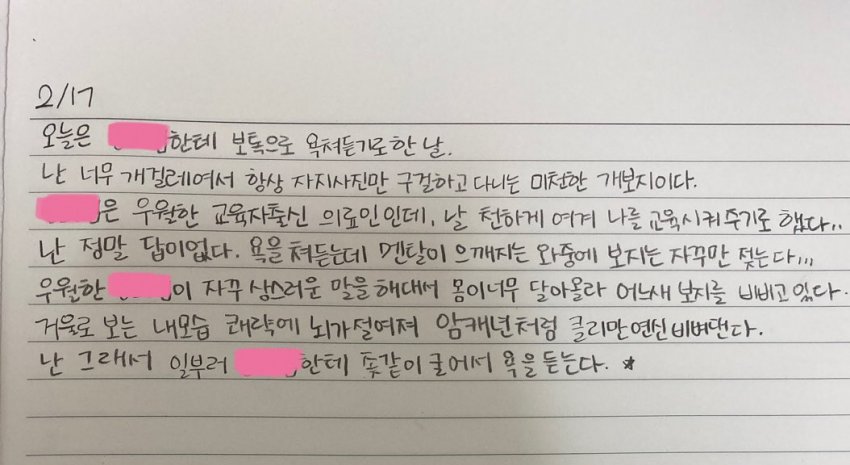 2/17
오늘은 한테 보톡으로 욕쳐듣기로한 날.
난 너무 개걸레여서 항상 자지사진만 구걸하고 다니는 미천한 개보지이다.
은 우월한 교육자출신 의료인인데, 날 천하게 여겨 나를 교육시켜 주기로 했다..
난 정말 답이없다. 욕을 쳐듣는데 멘탈이 으깨지는 와중에 보지는 자꾸만 젖는다...
우월한 이 자꾸 상스러운 말을 해대서 몸이너무 달아올라 어느새 보지를 비비고 있다.
거울로 보는 내모습 쾌락에 뇌가절여져 암캐년처럼 클리만연신비벼댄다.
난 그래서 일부러 한테 좆같이 굴어서 욕을 듣는다. ★